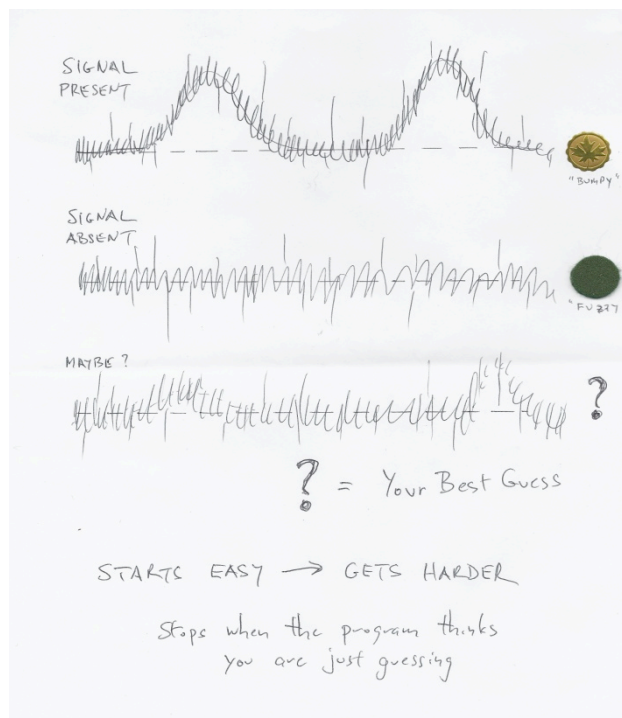 SIGNAL
PRESENT
"BUMPY"
SIGNAL
ABSENT
"FUZZY
MAYBE ?
?
? = YOUR BEST GUESS
STARTS EASY → GETS HARDER
Stops when the program thinks
you are just guessing